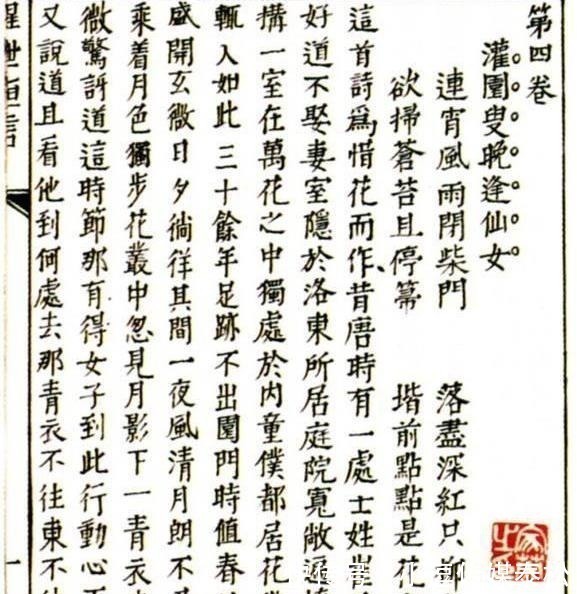 第四卷
灌園叟晚逢仙女
連宵風雨閉柴門 落盡深紅只
欲掃蒼苔且停箒 堦前點點是花
這首詩爲惜花而作昔唐時有一處士姓崔
好道不娶妻室隱於洛東所居庭院寬敞遍
搆一室在萬花之中獨處於內童僕都居花
輒入如此三十餘年足跡不出園門時值春
盛開玄微日夕徜徉其間一夜風清月朗不
乘着月色獨步花叢中忽見月影下一青衣
微驚訝道這時節那有得女子到此行動心
又說道且看他到何處去那青衣不往東不往
醒世恒言 一